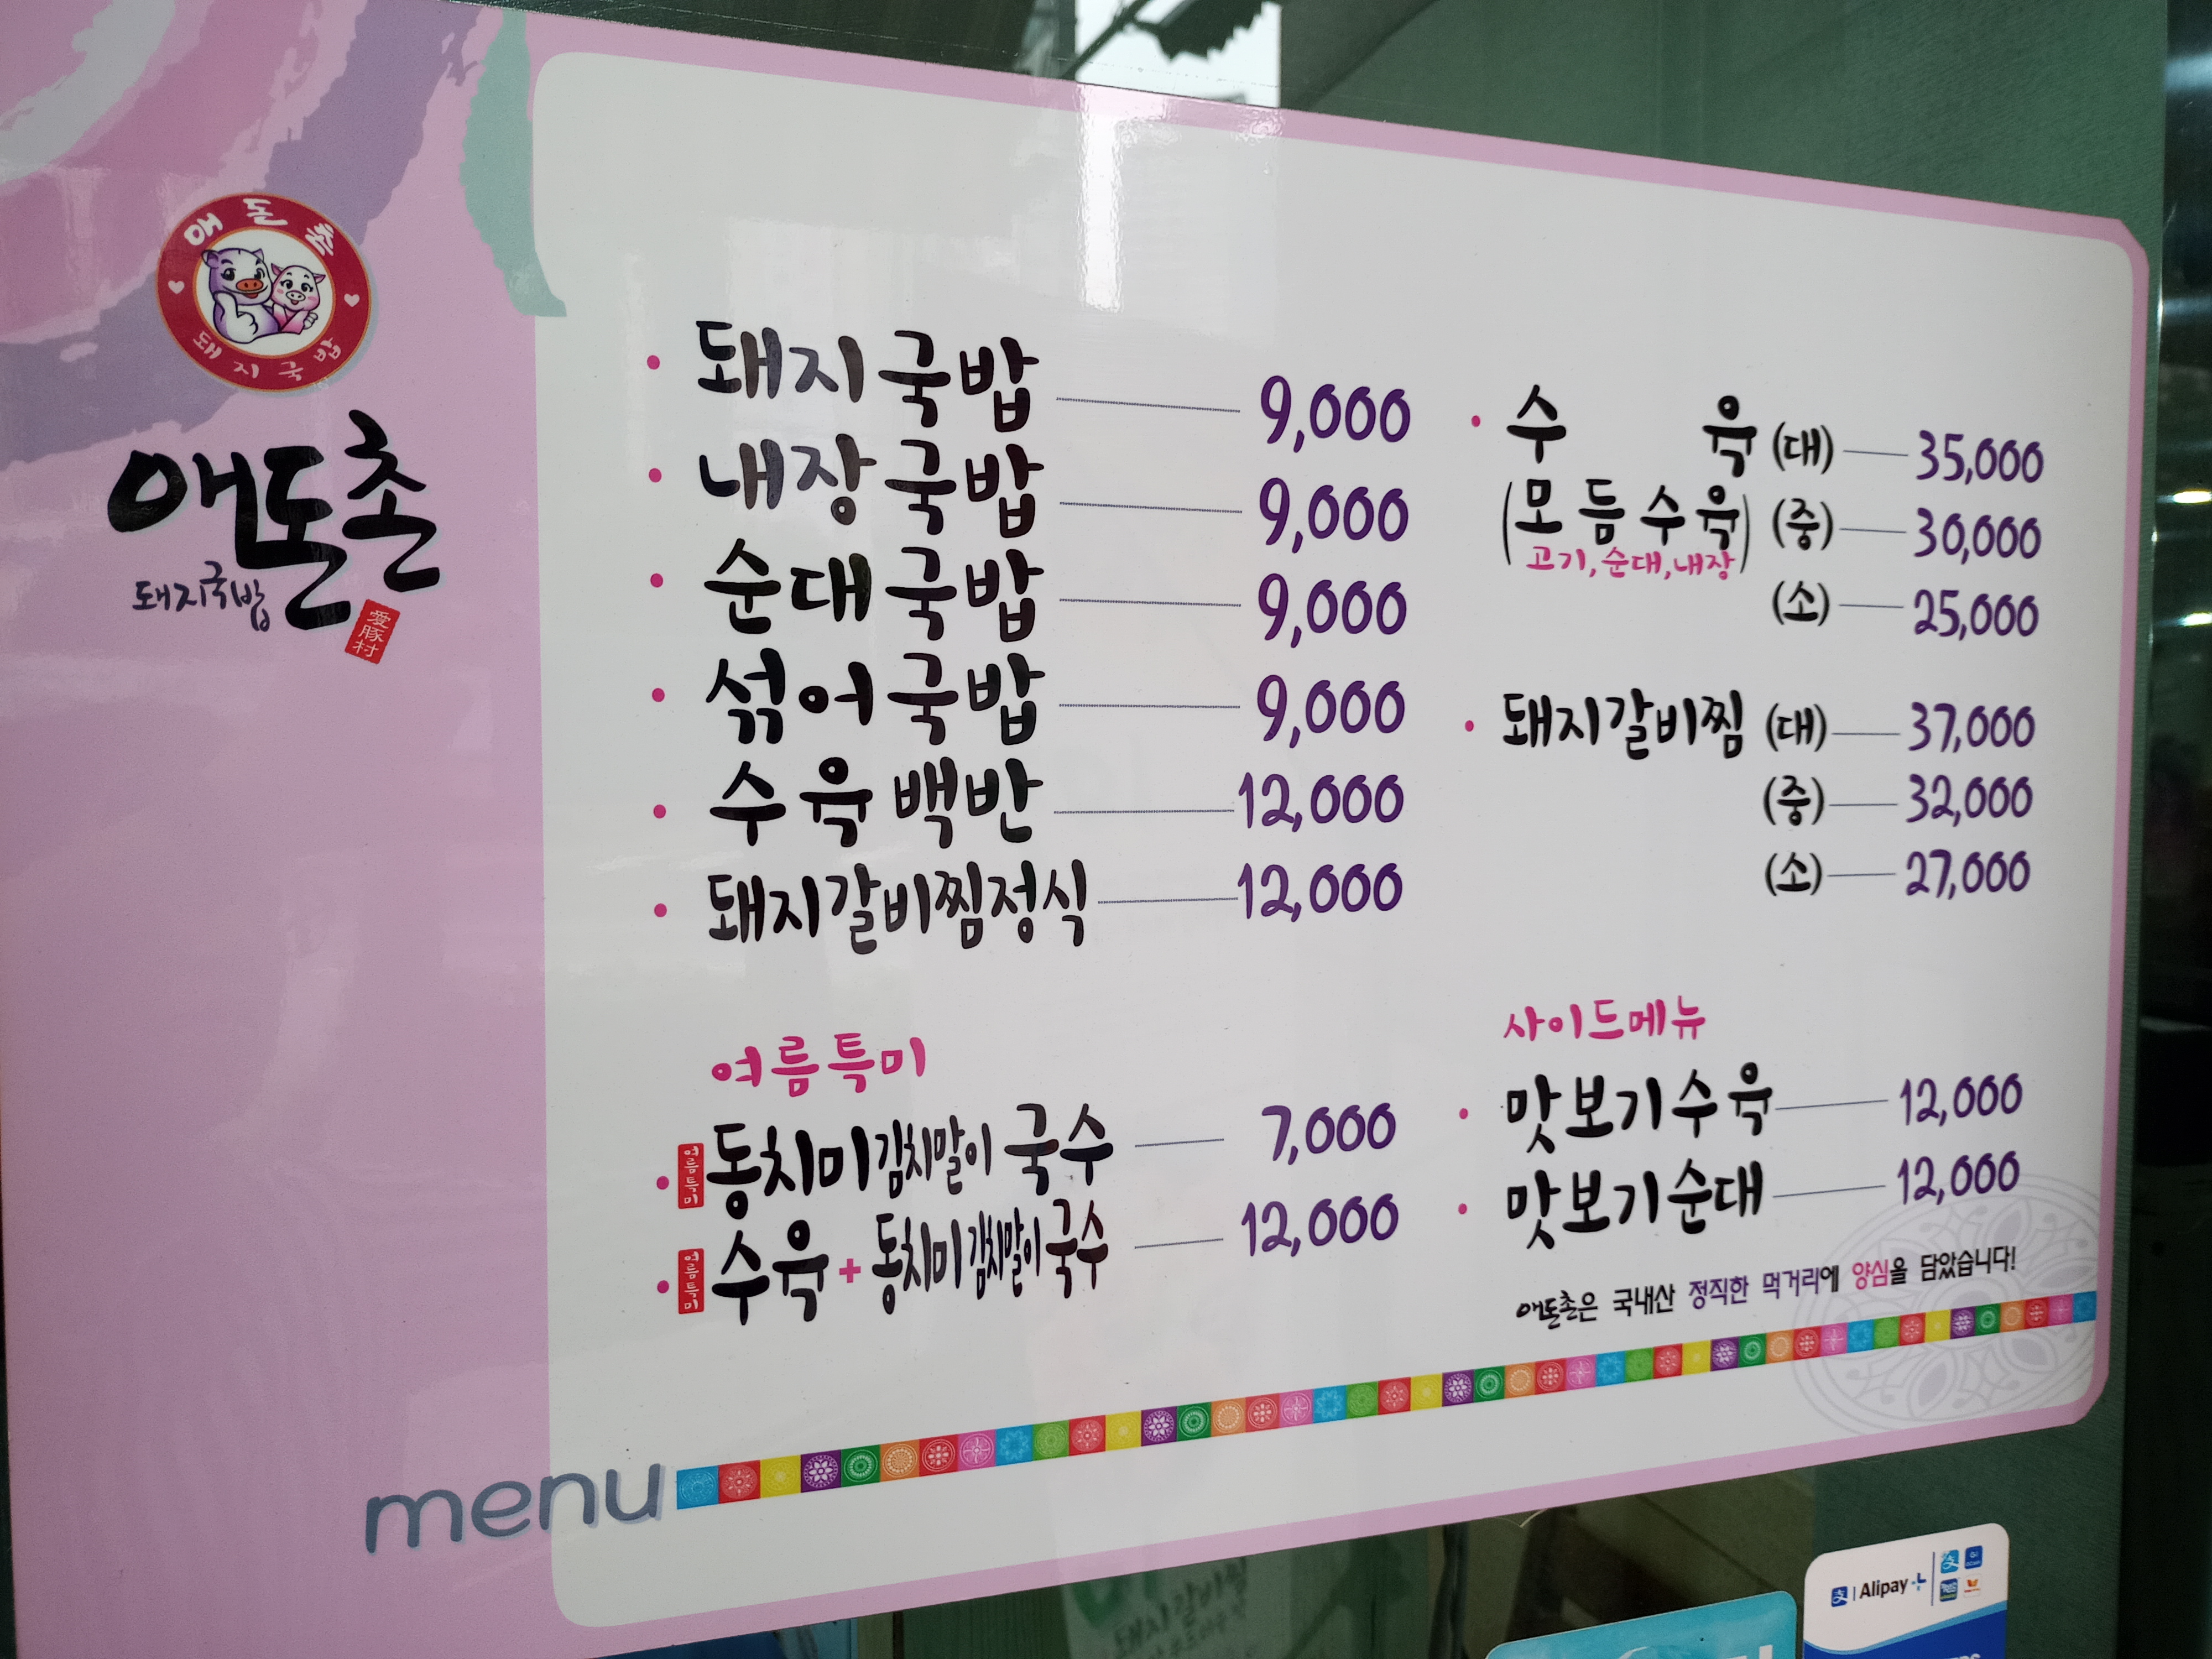 애돈촌
돼지국밥
애돈촌
돼지국밥
愛豚村
돼지국밥 9,000
내장국밥 9,000
순대국밥 9,000
섞어국밥 9,000
수육백반 12,000
돼지갈비찜정식 12,000
여름특미
여름특미 동치미김치말이국수 7,000
여름특미 수육+동치미김치말이국수 12,000
수육 (대) 35,000
(모듬수육) (중) 30,000
고기,순대,내장
(소) 25,000
돼지갈비찜 (대) 37,000
(중) 32,000
(소) 27,000
사이드메뉴
맛보기수육 12,000
맛보기순대 12,000
애돈촌은 국내산 정직한 먹거리에 양심을 담았습니다!
menu
Alipay+
돼지갈비찜